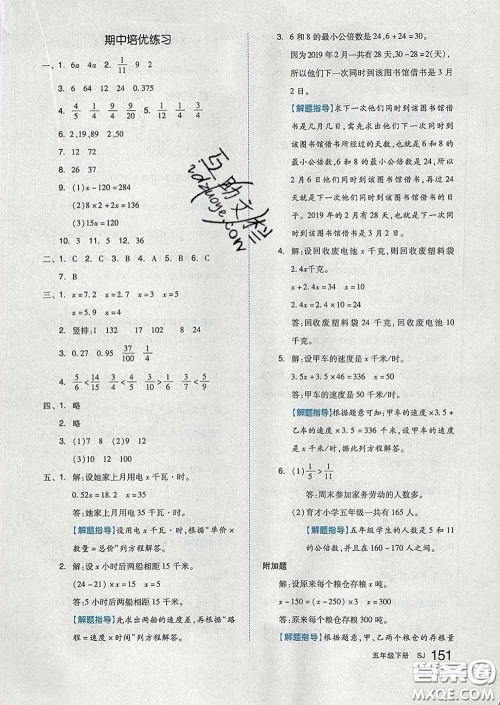 期中培优练习
一、1. 6a 4a 2. 1/11 9 2
3. 32 6 24 12 0.375
4. 4/5 4/9 9/10 4/5 5. 1/12 1/4 3/4
6. 2,19,89 2 20
7. 16 77 48
9. (1)x-120=284
(2)8×2+2x=36
(3)15x=120
10. 3 11. 5 12. 30
二、1. C 2. A 3. A 4. B 5. A 6. C
7. B
三、1. x=7.2 x=2.5 x=3.7 x=5
x=5.9 x=4
2. 竖排:1 3 1 24 8 17
3. 0.27 0.95 37/100 1/4
4. 5/6<13/14 3/11<1/2 2/5<3/7 4/15<2/5
四、1. 略
2. 略
3. (1)7 8 (2)9 12
(3)10 12
五、1. 解:设她家上月用电x千瓦·时。
0.52x=18.2 x=35
答:她家上月用电35千瓦·时。
【解题指导】设用电x千瓦·时,根据“单价×
数量=总价”列方程解答。
2. 解:设x小时后两船相距15千米。
(24-21)×x=15 x=5
答:5小时后两船相距15千米。
【解题指导】先求出两船的速度差,再根据“速
度差×时间=路程”列方程解答。
3. 6和8的最小公倍数是24,2+24=26(日),
因为2019年2月一共有28天,30-28=2(天),所
以他们下一次同时到该图书馆借书是3月
2日。
【解题指导】求下一次他们同时到该图书馆借
书是几月几日,需先求出他们下一次同时到
该图书馆借书所经过的天数,也就是6和8的
最小公倍数24,6和8的最小公倍数是24,所以
2月6日他们已同时到该图书馆借书,再过24
天就是他们下一次同时到该图书馆借书的
日子。2019年2月有28天,所以他们下一次
同时到该图书馆借书是3月2日。
4. 解:设回收废电池x千克,则回收废塑料袋
2.4x千克。
2.4x+x=34 x=10
2.4x=2.4×10=24
答:回收废塑料袋24千克,回收废电池10
千克。
5. 解:设甲车的速度是x千米/时。
3.5x+3.5×46=336 x=50
答:甲车的速度是50千米/时。
【解题指导】根据题意可知:甲车的速度×3.5+
乙车的速度×3.5=两地之间的路程336千米,
据此列方程解答。
6. (1)1/5>1/11
答:周末参加家务劳动的人数多。
(2)育才小学五年级一共有165人。
【解题指导】五年级学生的人数是5和11
的公倍数,并且在160-170人之间。
附加题
解:设原来每个粮仓存粮x吨。
x-150=(x-250)×3 x=300
答:原来每个粮仓存粮300吨。
【解题指导】根据题意,甲、乙两个粮仓的存粮量
五年级下册 SJ 151
互助文栏
vdzuoye.com
答案圈
MXQE.COM